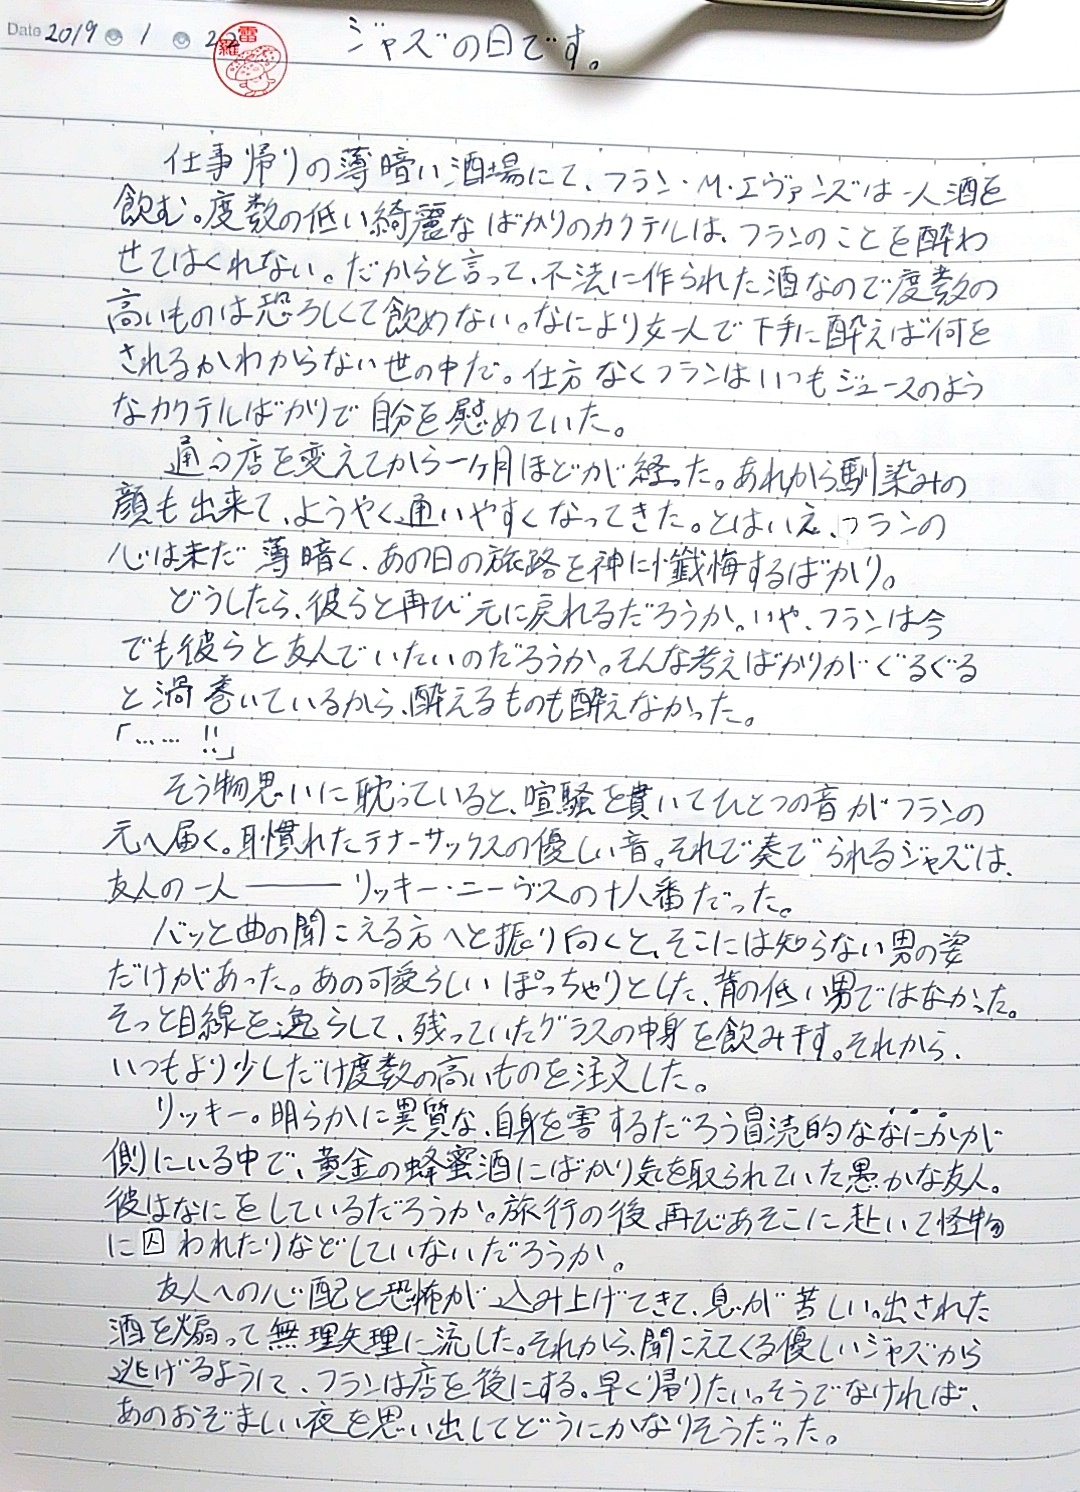 Date 2019 1 22
雷羅
ジャズの日です。
仕事帰りの薄暗い酒場にて、フラン・M・エヴァンズは一人酒を
飲む。度数の低い綺麗なばかりのカクテルは、フランのことを酔わ
せてはくれない。だからと言って、不法に作られた酒なので度数の
高いものは恐ろしくて飲めない。なにより女一人で下手に酔えば何を
されるかわからない世の中だ。仕方なくフランはいつもジュースのよう
なカクテルばかりで自分を慰めていた。
通う店を変えてから一ヶ月ほどが経った。あれから馴染みの
顔も出来て、ようやく通いやすくなってきた。とはいえ、フランの
心は未だ薄暗く、あの日の旅路を神に懺悔するばかり。
どうしたら、彼らと再び元に戻れるだろうか。いや、フランは今
でも彼らと友人でいたいのだろうか。そんな考えばかりがぐるぐる
と渦巻いているから、酔えるものも酔えなかった。
「…… !!」
そう物思いに耽っていると、喧騒を貫いてひとつの音がフランの
元へ届く。耳慣れたテナーサックスの優しい音。それで奏でられるジャズは、
友人の一人――リッキー・ニーヴスの十八番だった。
バッと曲の聞こえる方へと振り向くと、そこには知らない男の姿
だけがあった。あの可愛らしいぽっちゃりとした、背の低い男ではなかった。
そっと目線を逸らして、残っていたグラスの中身を飲み干す。それから、
いつもより少しだけ度数の高いものを注文した。
リッキー。明らかに異質な、自身を害するだろう冒涜的ななにかが
側にいる中で、黄金の蜂蜜酒にばかり気を取られていた愚かな友人。
彼はなにをしているだろうか。旅行の後、再びあそこに赴いて怪物
に囚われたりなどしていないだろうか。
友人への心配と恐怖が込み上げてきて、息が苦しい。出された
酒を煽って無理矢理に流した。それから、聞こえてくる優しいジャズから
逃げるようにて、フランは店を後にする。早く帰りたい。そうでなければ、
あのおぞましい夜を思い出してどうにかなりそうだった。